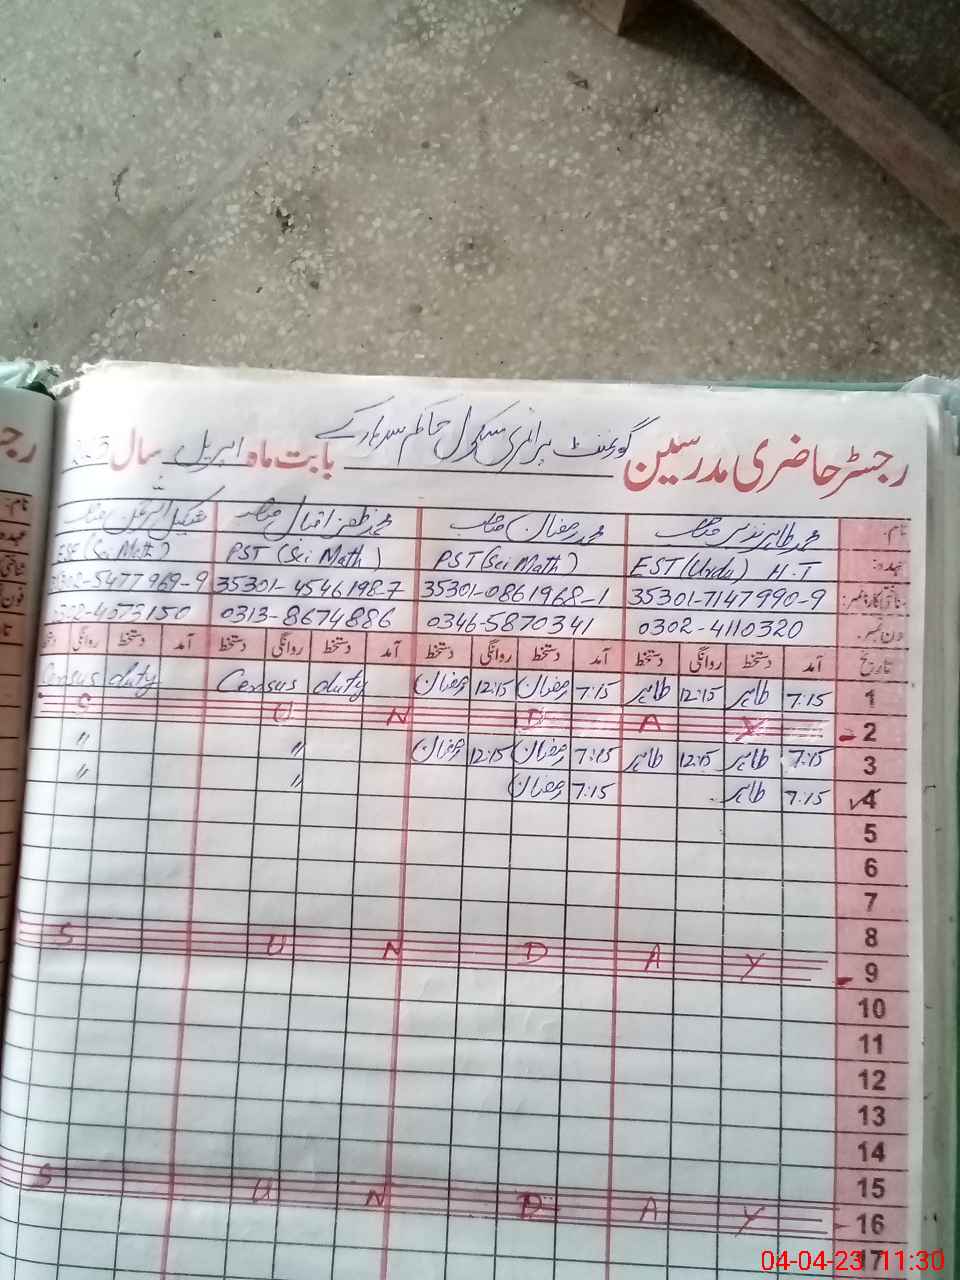 رجسٹر حاضری مدرسین گورنمنٹ پرائمری سکول حاکم سدہارکے بابت ماہ اپریل سال
نام: محمد طاہر نذیر صاحب محمد رمضان صاحب محمد ظفر اقبال صاحب
عہدہ: EST (Urdu) H.T PST (Sci Math) PST (Sci Math) (Sci Math)
شناختی کارڈ نمبر: 35301-7147990-9 35301-0861968-1 35301-4546198-7 5477969-9
فون نمبر: 0302-4110320 0346-5870341 0313-8674886 4573150
تاریخ آمد دستخط روانگی دستخط آمد دستخط روانگی دستخط آمد دستخط روانگی دستخط آمد دستخط روانگی
1 7:15 طاہر 12:15 طاہر 7:15 رمضان 12:15 رمضان Census duty Census duty
2 S U N D A Y
3 7:15 طاہر 12:15 طاہر 7:15 رمضان 12:15 رمضان " "
4 7:15 طاہر 7:15 رمضان " "
5
6
7
8
9 S U N D A Y
10
11
12
13
14
15
16 S U N D A Y
17
04-04-23 11:30